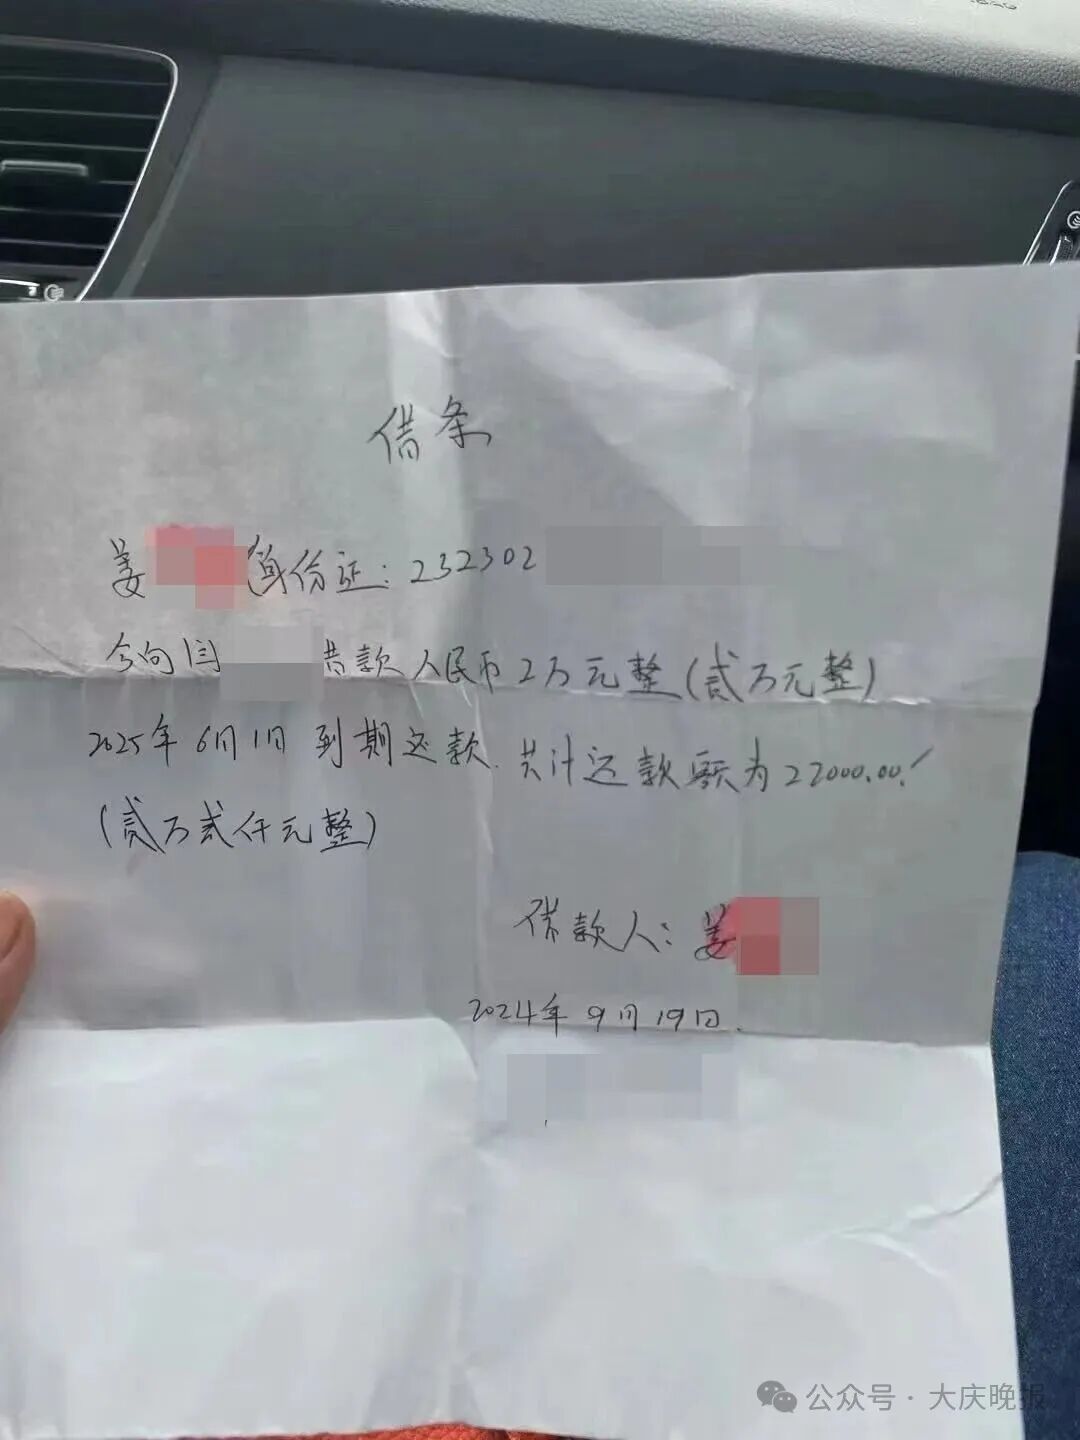 借条
姜 身份证：232302
今向闫 共款人民币2万元整(贰万元整)
2025年6月1日到期还款.共计还款额为22000.00！
(贰万贰仟元整)
借款人：姜
2024年9月19日.
公众号·大庆晚报